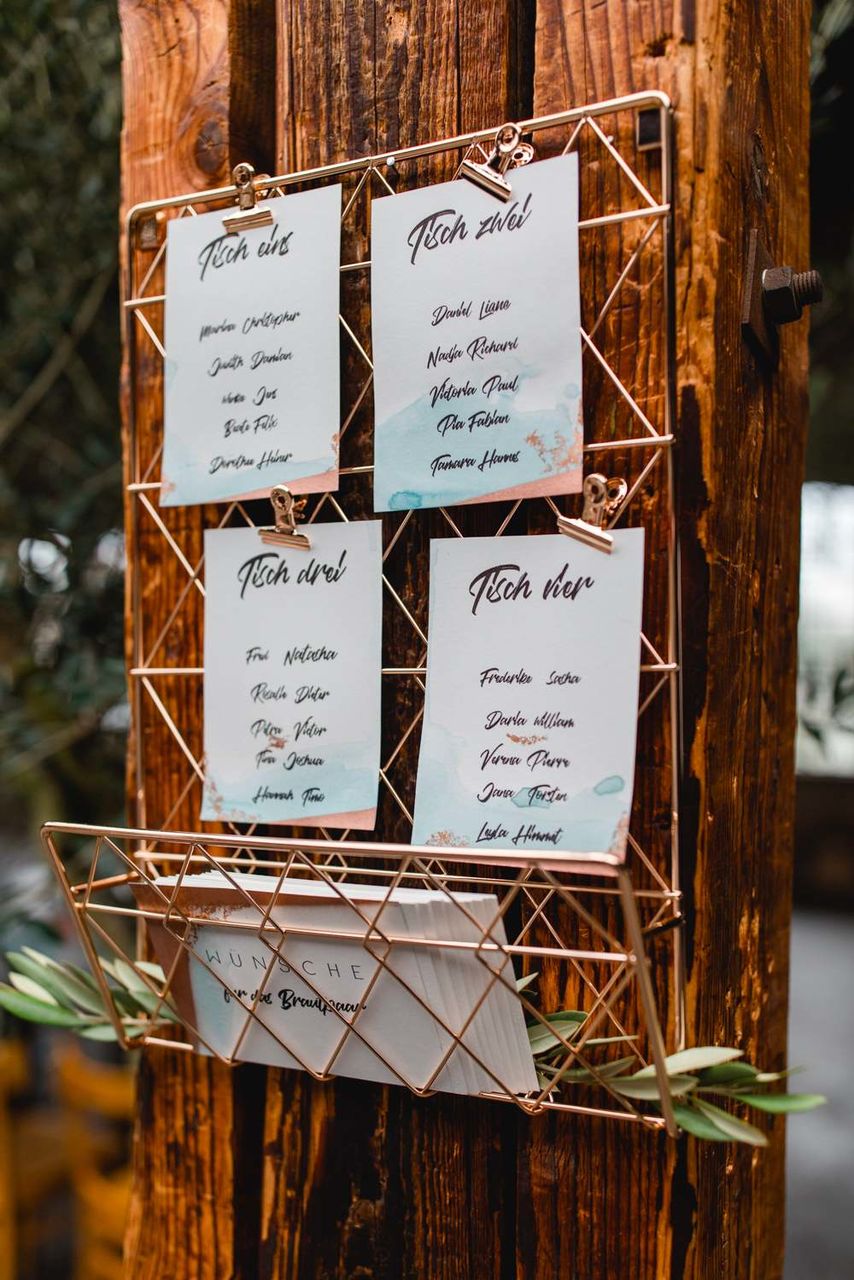 Tisch eins
Marina Christopher
Judith Damian
Jens
Beate Felix
Dorothee Heiner
Tisch zwei
Daniel Liane
Nadja Richard
Viktoria Paul
Pia Fabian
Tamara Hannes
Tisch drei
Natascha
Rosalie Dieter
Petra Victor
Tina Joshua
Hannah Timo
Tisch vier
Frederike Sascha
Daria william
Verena Pierre
Jana Torsten
Leyla Himmet
WÜNSCHE
für das Brautpaar